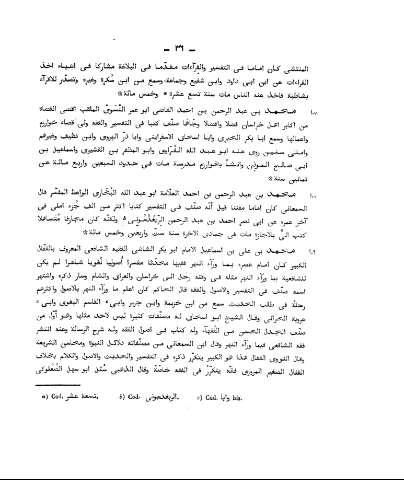 — ٣٩ —
المنتشى كان اماما فى التفسير والقراءات مقدما فى البلاغة مشاركا فى اشياء اخذ
القراءات عن ابن ابى داود وابن شفيع وجماعة وسمع من ابن سكرة وغيره وتصدر للاقراء
بشاطبة فاخذ عنه الناس مات سنة تسع عشرة a وخمس مائة*
١٠٠ محمد بن عبد الرحمن بن احمد القاضى ابو عمر النسوى الملقب اقضى القضاة
من اكابر اهل خراسان فضلا وافضالا وجاها صنف كتبا فى التفسير والفقه وولى قضاء خوارزم
واعمالها وسمع ابا بكر الحيرى وابا اسحاق الاسفراينى وابا ذر الهروى وابن نظيف وغيرهم
واملى سنين روى عنه ابو عبد الله الفراوى وابو المظفر بن القشيرى واسماعيل بن
ابى صالح المؤذن وانشأ بخوارزم مدرسة مات فى حدود السبعين واربع مائة عن
ثمانين سنة*
١٠١ محمد بن عبد الرحمن بن احمد العلامة ابو عبد الله البخارى الواعظ المفسر قال
السمعانى كان اماما مفتنا قيل انه صنف فى التفسير كتابا اكثر من الف جزء املى فى
آخر عمره عن ابى نصر احمد بن عبد الرحمن الريغذمونى b ولكنه كان مجازفا متساهلا
كتب الى بالاجازة مات فى جمادى الآخرة سنة ست واربعين وخمس مائة*
١٠٢ محمد بن على بن اسماعيل الامام ابو بكر الشاشى الفقيه الشافعى المعروف بالقفال
الكبير كان امام عصره بما وراء النهر فقيها محدثا مفسرا اصوليا لغويا شاعرا لم يكن
للشافعية بما وراء النهر مثله فى وقته رحل الى خراسان والعراق والشام وسار ذكره واشتهر
اسمه صنف فى التفسير والاصول والفقه قال الحاكم كان اعلم ما وراء النهر بالاصول واكثرهم
رحلة فى طلب الحديث سمع من ابن خزيمة وابن جرير وابى c القاسم البغوى وابى c
عروبة الحرانى وقال الشيخ ابو اسحاق له مصنفات كثيرة ليس لاحد مثلها وهو اول من
صنف الجدل الحسن من الفقهاء وله كتاب فى اصول الفقه وله شرح الرسالة وعنه انتشر
فقه الشافعى فيما وراء النهر وقال ابن السمعانى من مصنفاته دلائل النبوة ومحاسن الشريعة
وقال النووى القفال هذا هو الكبير يتكرر ذكره فى التفسير والحديث والاصول والكلام بخلاف
القفال الصغير المروزى فانه يتكرر فى الفقه خاصة وقال الذهبى سئل ابو سهل الصعلوكى
a) Cod. تسعة عشر. b) Cod. الريغدمونى. c) Cod. وابا bis.